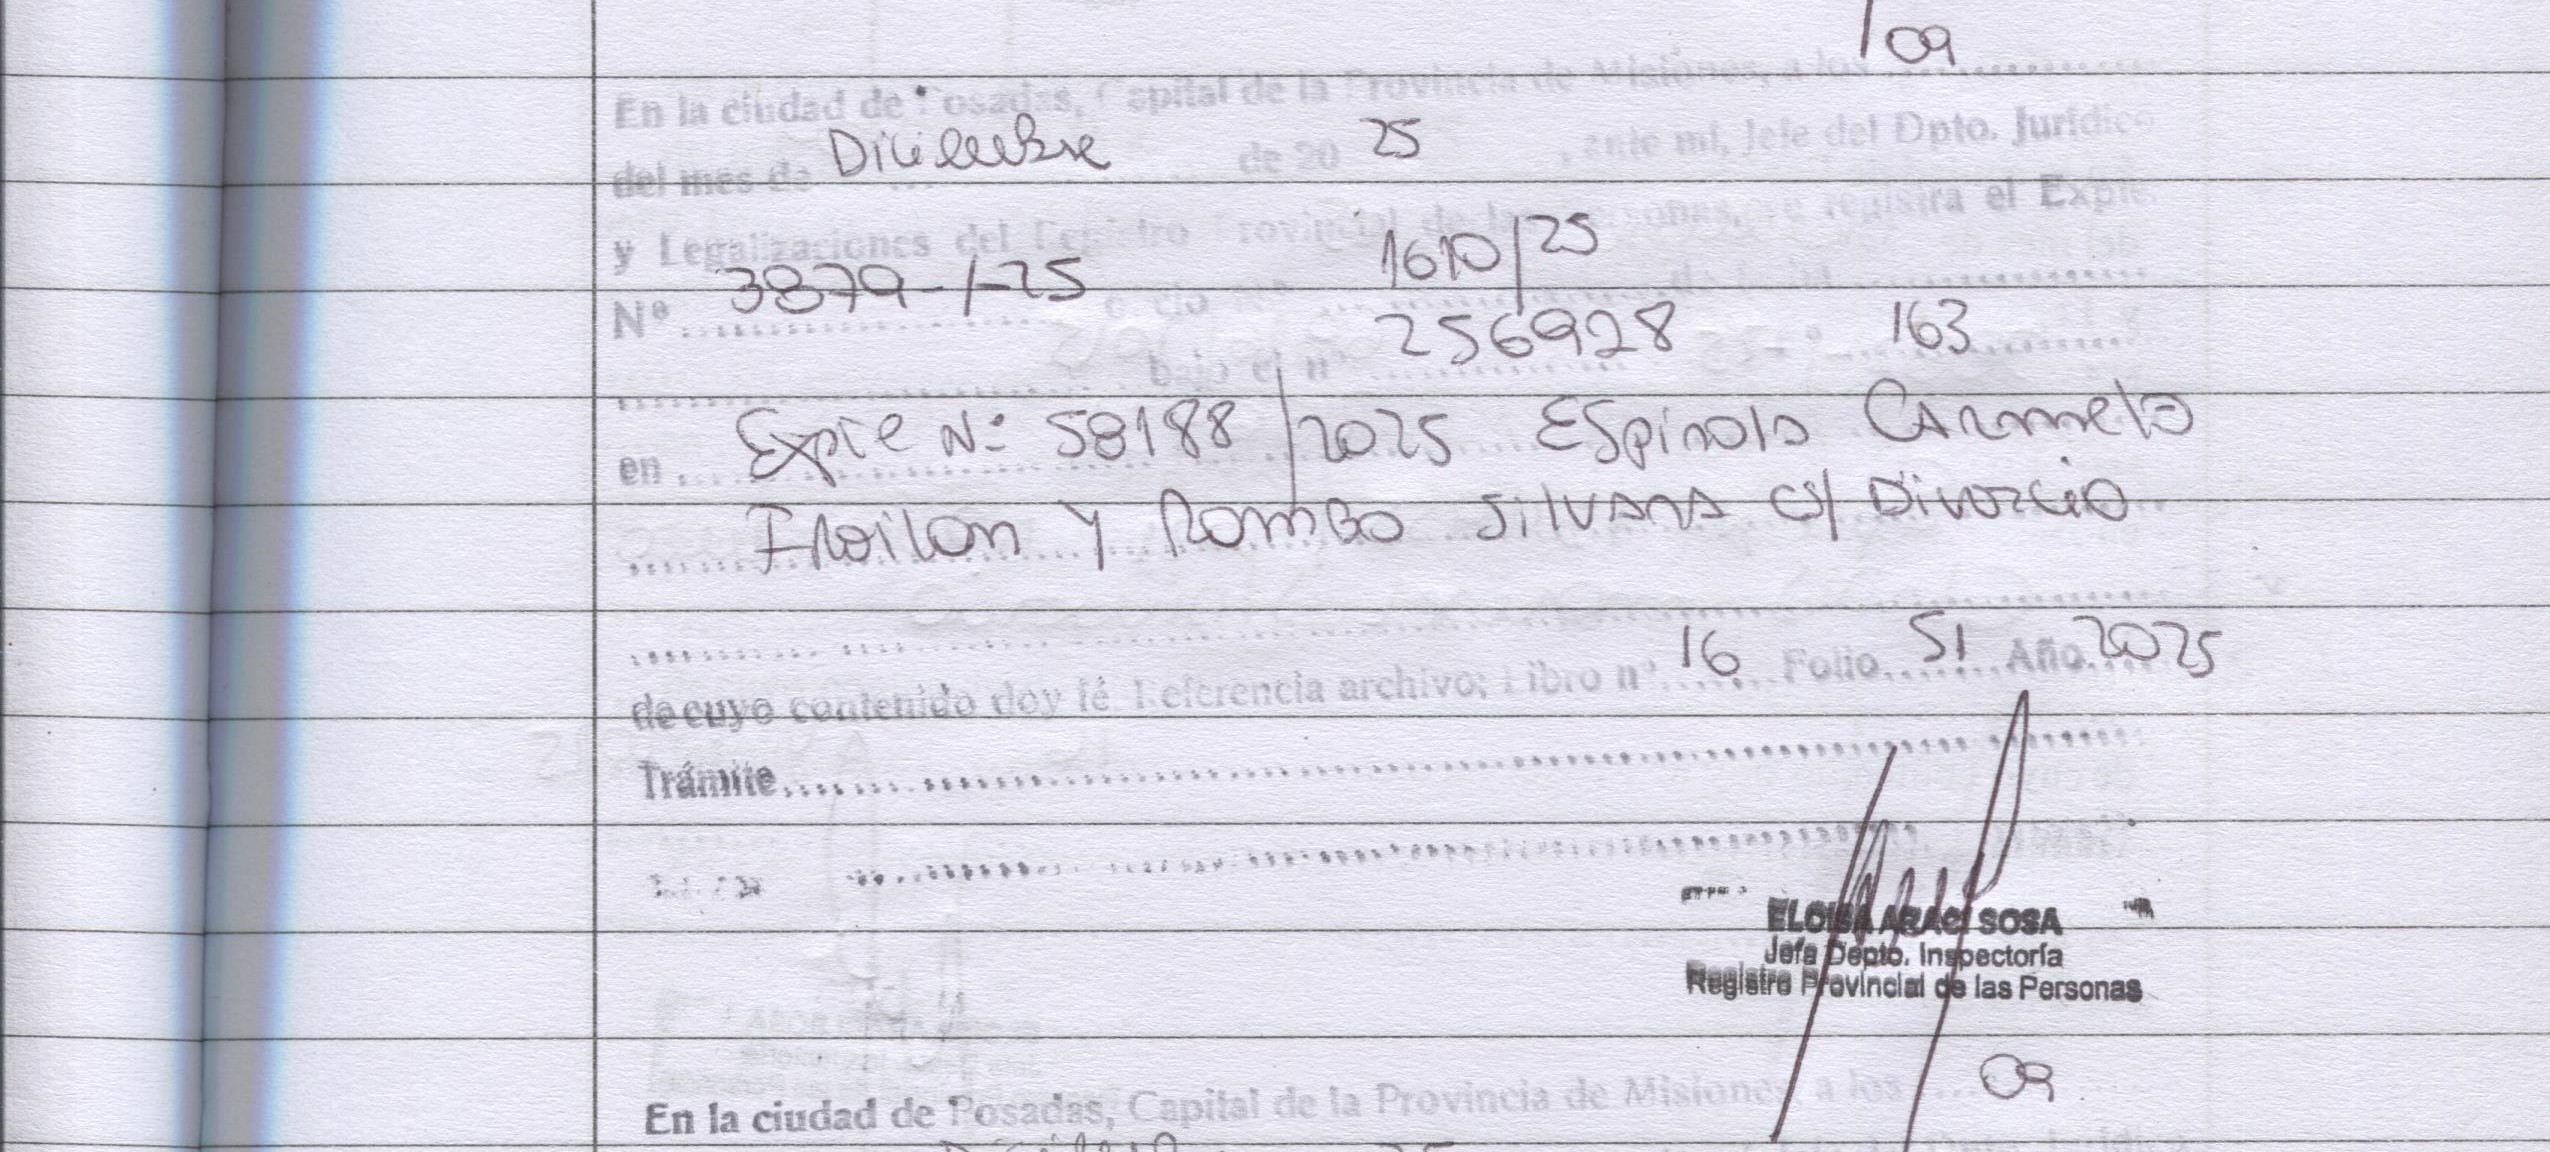 09
En la ciudad de Posadas, Capital de la Provincia de Misiones, a los
del mes de Diciembre de 20 25, ante mí, Jefe del Dpto. Jurídico
y Legalizaciones del Registro Provincial de las Personas, se registra el Expte.
Nº 3879-1-25 oficio nº 1610/25
bajo el nº 256928 163
en Expte Nº 58188/2025 Espinola Carmelo
Froilan y Rombo Silvana S/ Divorcio
de cuyo contenido doy fé. Referencia archivo; Libro nº 16 Folio 51 Año 2025
Trámite
ELOISA ARACI SOSA
Jefa Depto. Inspectoría
Registro Provincial de las Personas
09
En la ciudad de Posadas, Capital de la Provincia de Misiones, a los